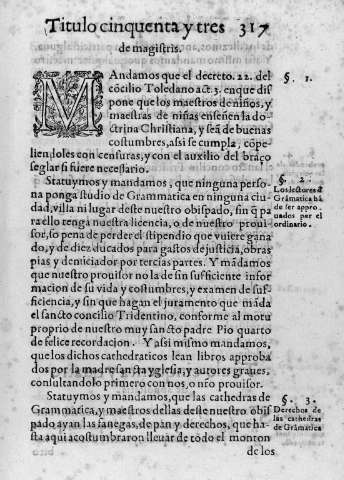 Titulo cinquenta y tres 317
de magistris.
MAndamos que el decreto. 22. del
cõcilio Toledano act. 3. en que dis
pone que los maestros de niños, y
maestras de niñas enseñen la do-
ctrina Christiana, y seã de buenas
costumbres, assi se cumpla, cõpe-
liendoles con censuras, y con el auxilio del braço
seglar si fuere necessario.
§. 1.
Statuymos y mandamos, que ninguna perso-
na ponga studio de Grammatica en ninguna ciu-
dad, villa ni lugar deste nuestro obispado, sin q̃ pa
ra ello tenga nuestra licencia, o de nuestro proui-
sor, so pena de perder el stipendio que uuiere gana
do, y de diez ducados para gastos de justicia, obras
pias y denticiador por tercias partes. Y mãdamos
que nuestro prouisor no la de sin sufficiente infor
macion de su vida y costumbres, y examen de suf-
ficiencia, y sin que hagan el juramento que mãda
el sancto concilio Tridentino, conforme al motu
proprio de nuestro muy sancto padre Pio quarto
de felice recordacion. Y assi mismo mandamos,
que los dichos cathedraticos lean libros approba
dos por la madre sancta yglesia, y autores graues,
consultandolo primero con nos, o nr̃o prouisor.
§. 2.
Los lectores d̃
Grãmatica hã
de ser appro
uados por el
ordinario.
Statuymos y mandamos, que las cathedras de
Grammatica, y maestros dellas deste nuestro obis
pado ayan las fanegas, de pan y derechos, que ha-
sta aqui acostumbraron lleuar de todo el monton
de los
§. 3.
Derechos de
las cathedras
de Grãmatica